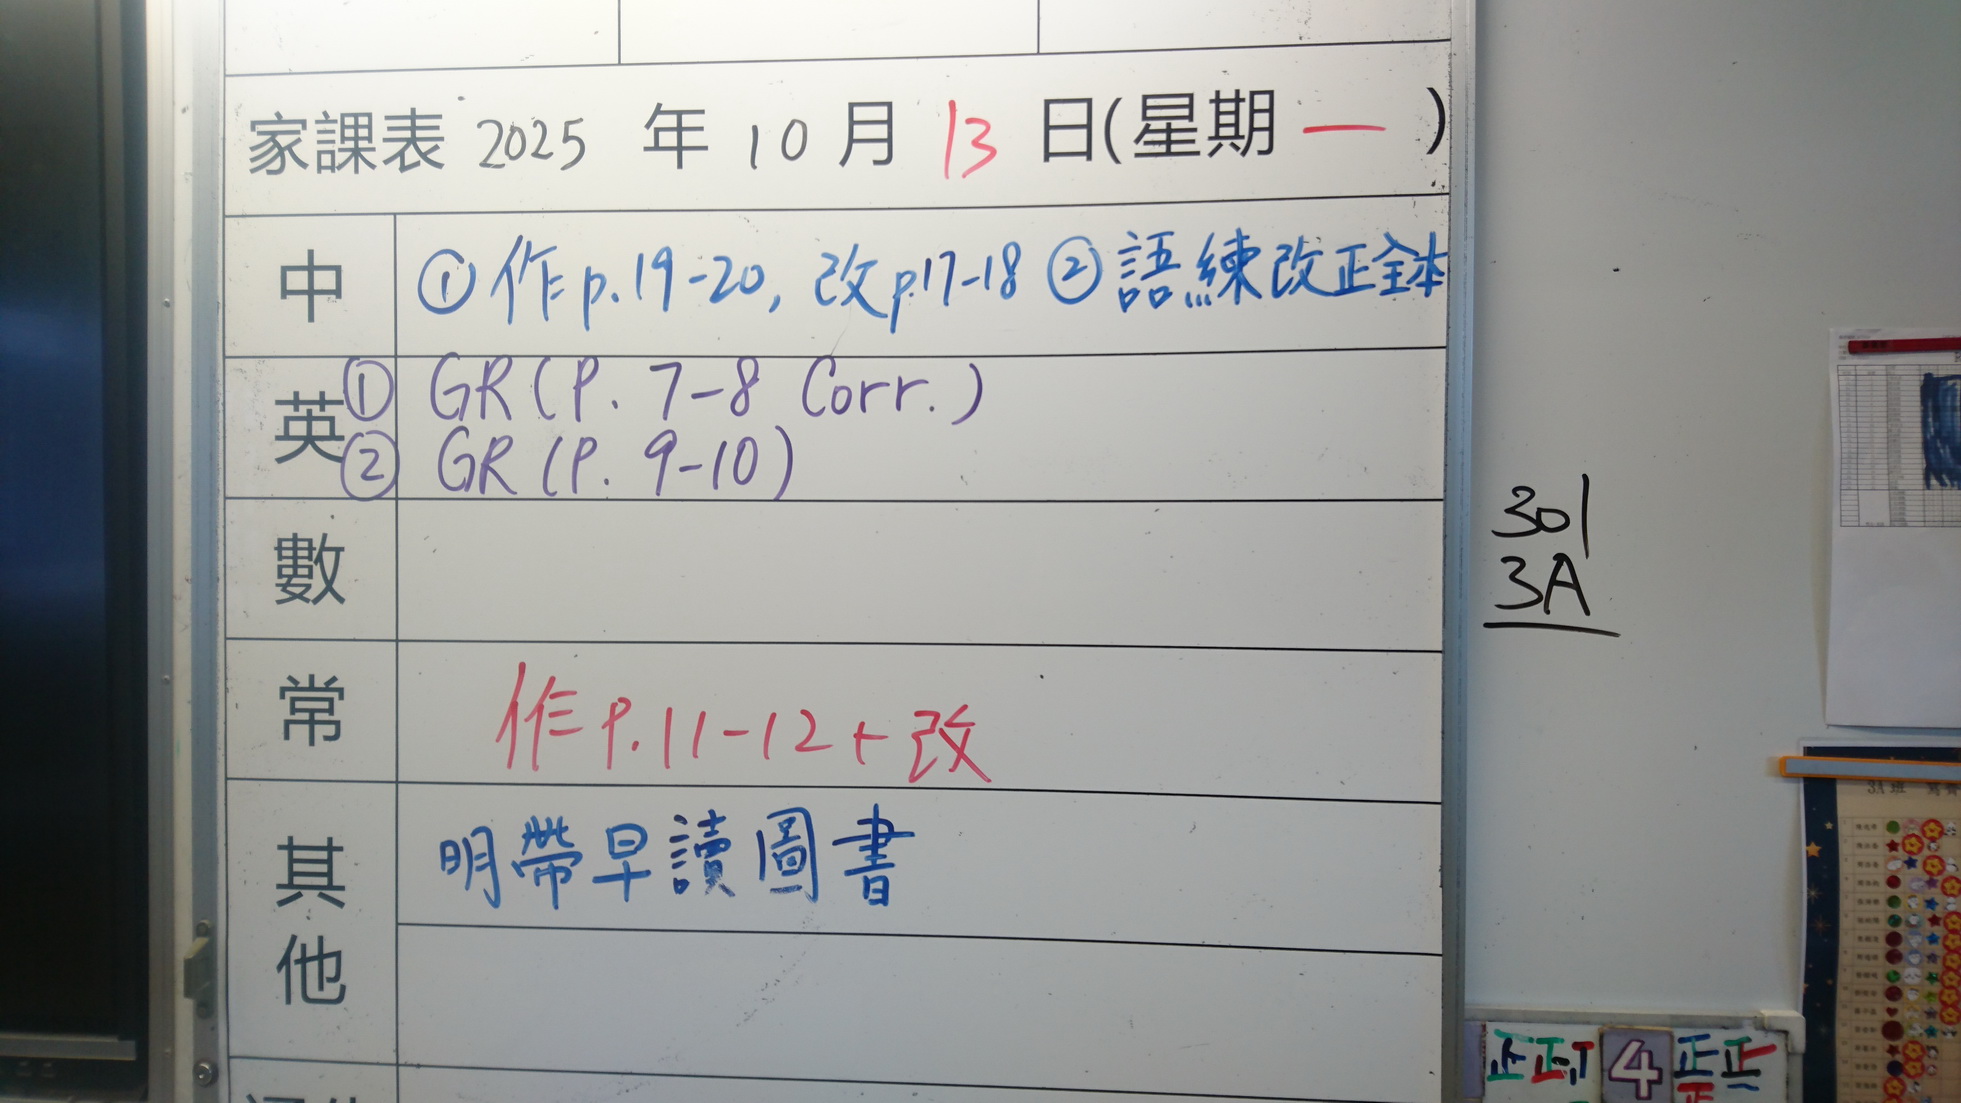 家課表 2025 年 10 月 13 日(星期 一 )
中 ①作p.19-20, 改p.17-18 ②語練改正全本
英 ① GR(P. 7-8 Corr.)
② GR(P. 9-10)
數
常 作P.11-12+改
其他 明帶早讀圖書
301
3A
3A班
正正丅 4 正正
正